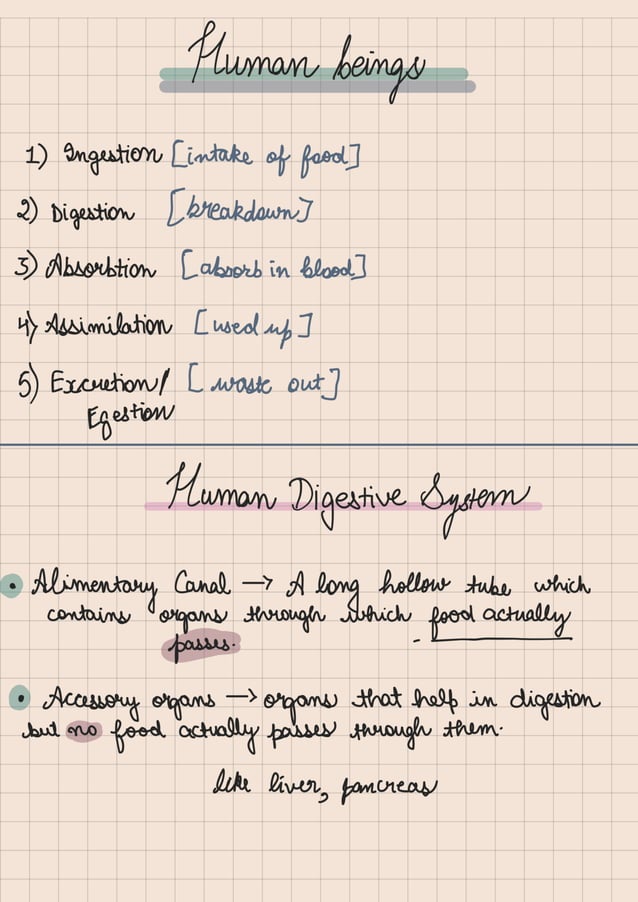 Human beings
1) Ingestion [intake of food]
2) Digestion [breakdown]
3) Absorbtion [absorb in blood]
4) Assimilation [used up]
5) Excretion/ [waste out]
Egestion
Human Digestive System
• Alimentary Canal → A long hollow tube which
contains organs through which food actually
passes.
• Accessory organs → organs that help in digestion
but no food actually passes through them.
like liver, pancreas